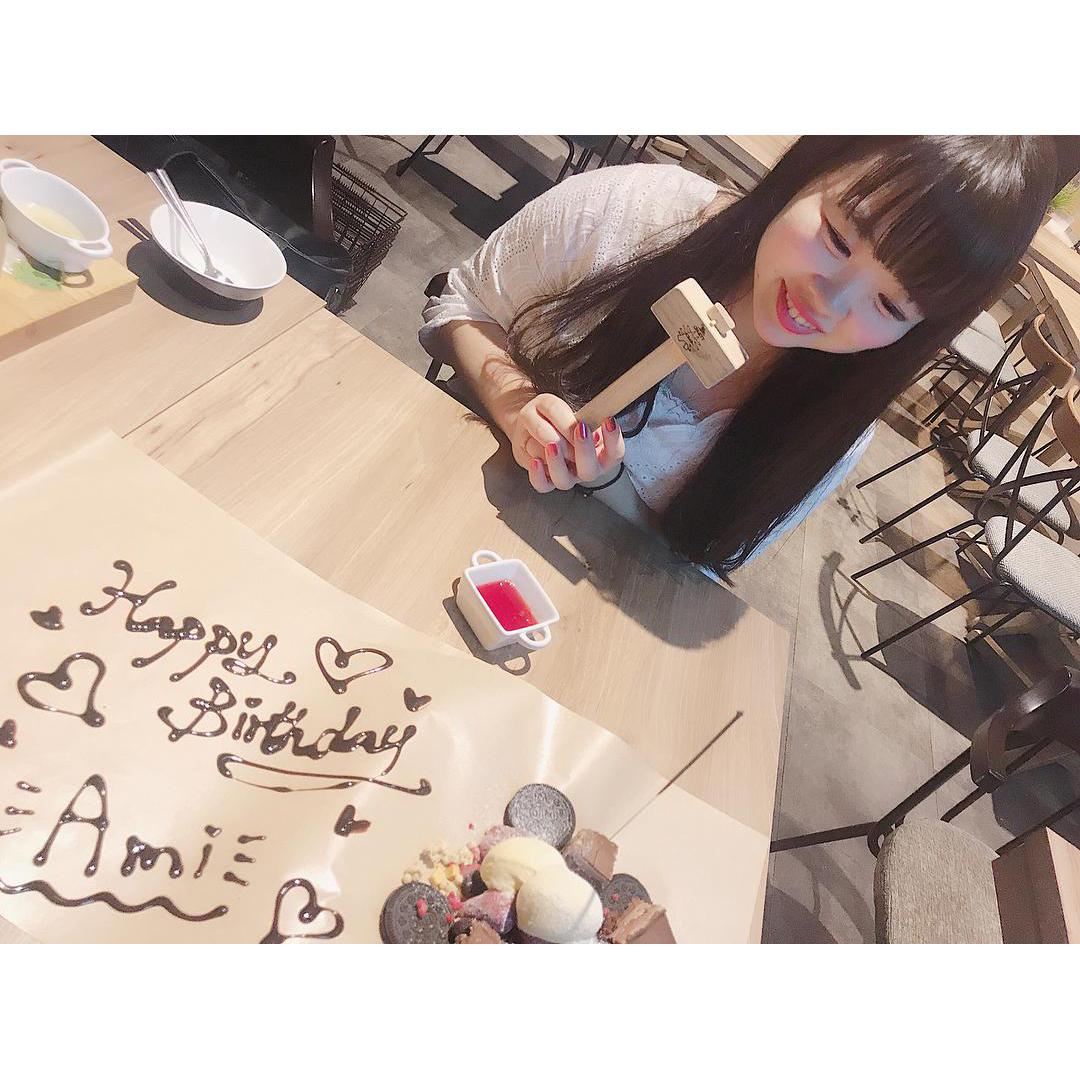 Happy
Birthday
Ami